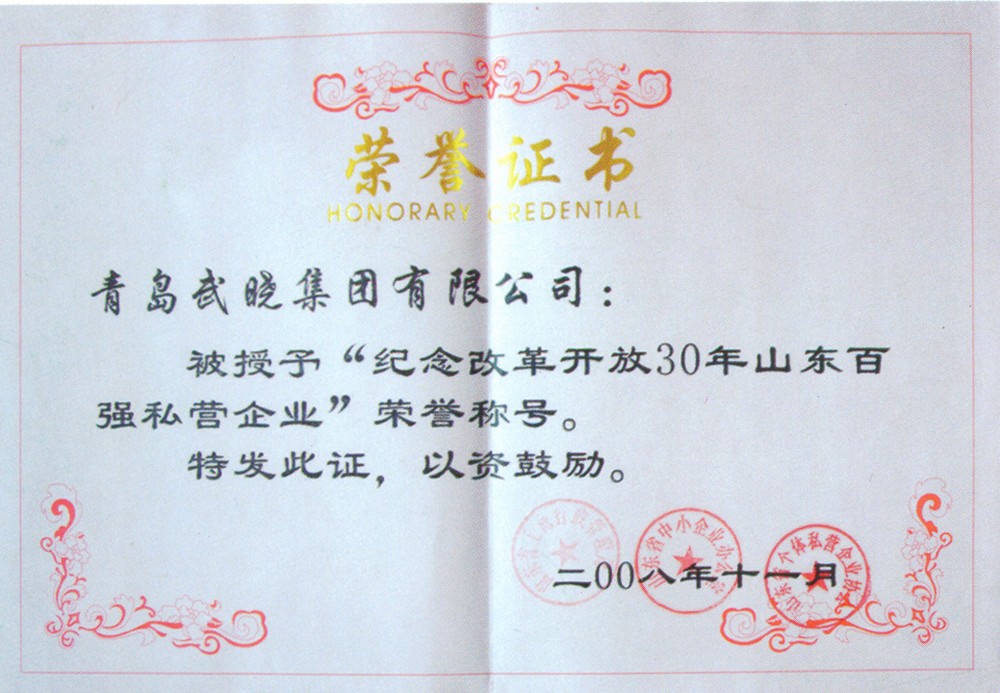 荣誉证书
HONORARY CREDENTIAL
青岛武晓集团有限公司：
被授予“纪念改革开放30年山东百
强私营企业”荣誉称号。
特发此证，以资鼓励。
山东省工商行政管理局
山东省中小企业办公室
山东省个体私营企业协会
二00八年十一月